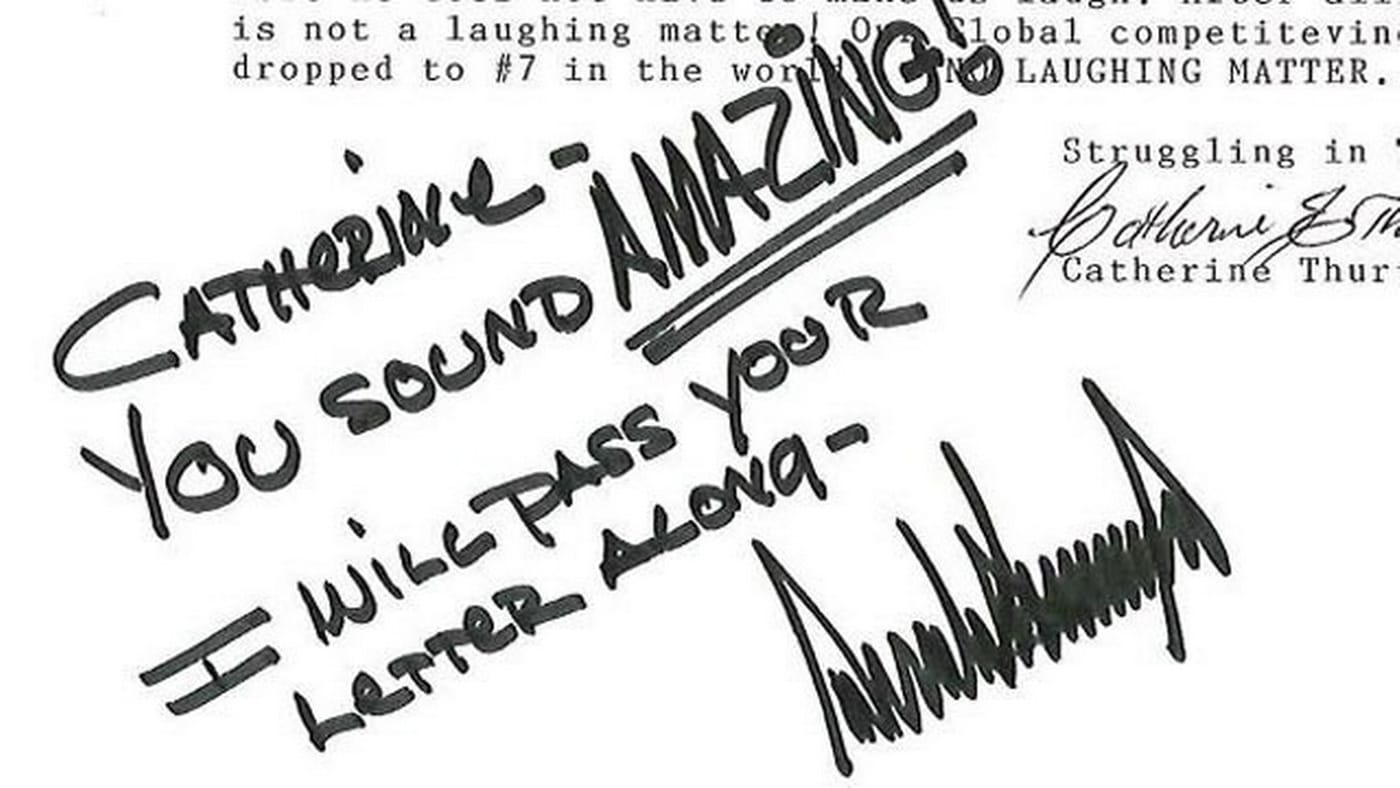 is not a laughing matter! Our Global competitevin
dropped to #7 in the world. NO LAUGHING MATTER.
Struggling in
Catherine
Catherine Thur
CATHERINE -
YOU SOUND AMAZING!
I WILL PASS YOUR
LETTER ALONG -